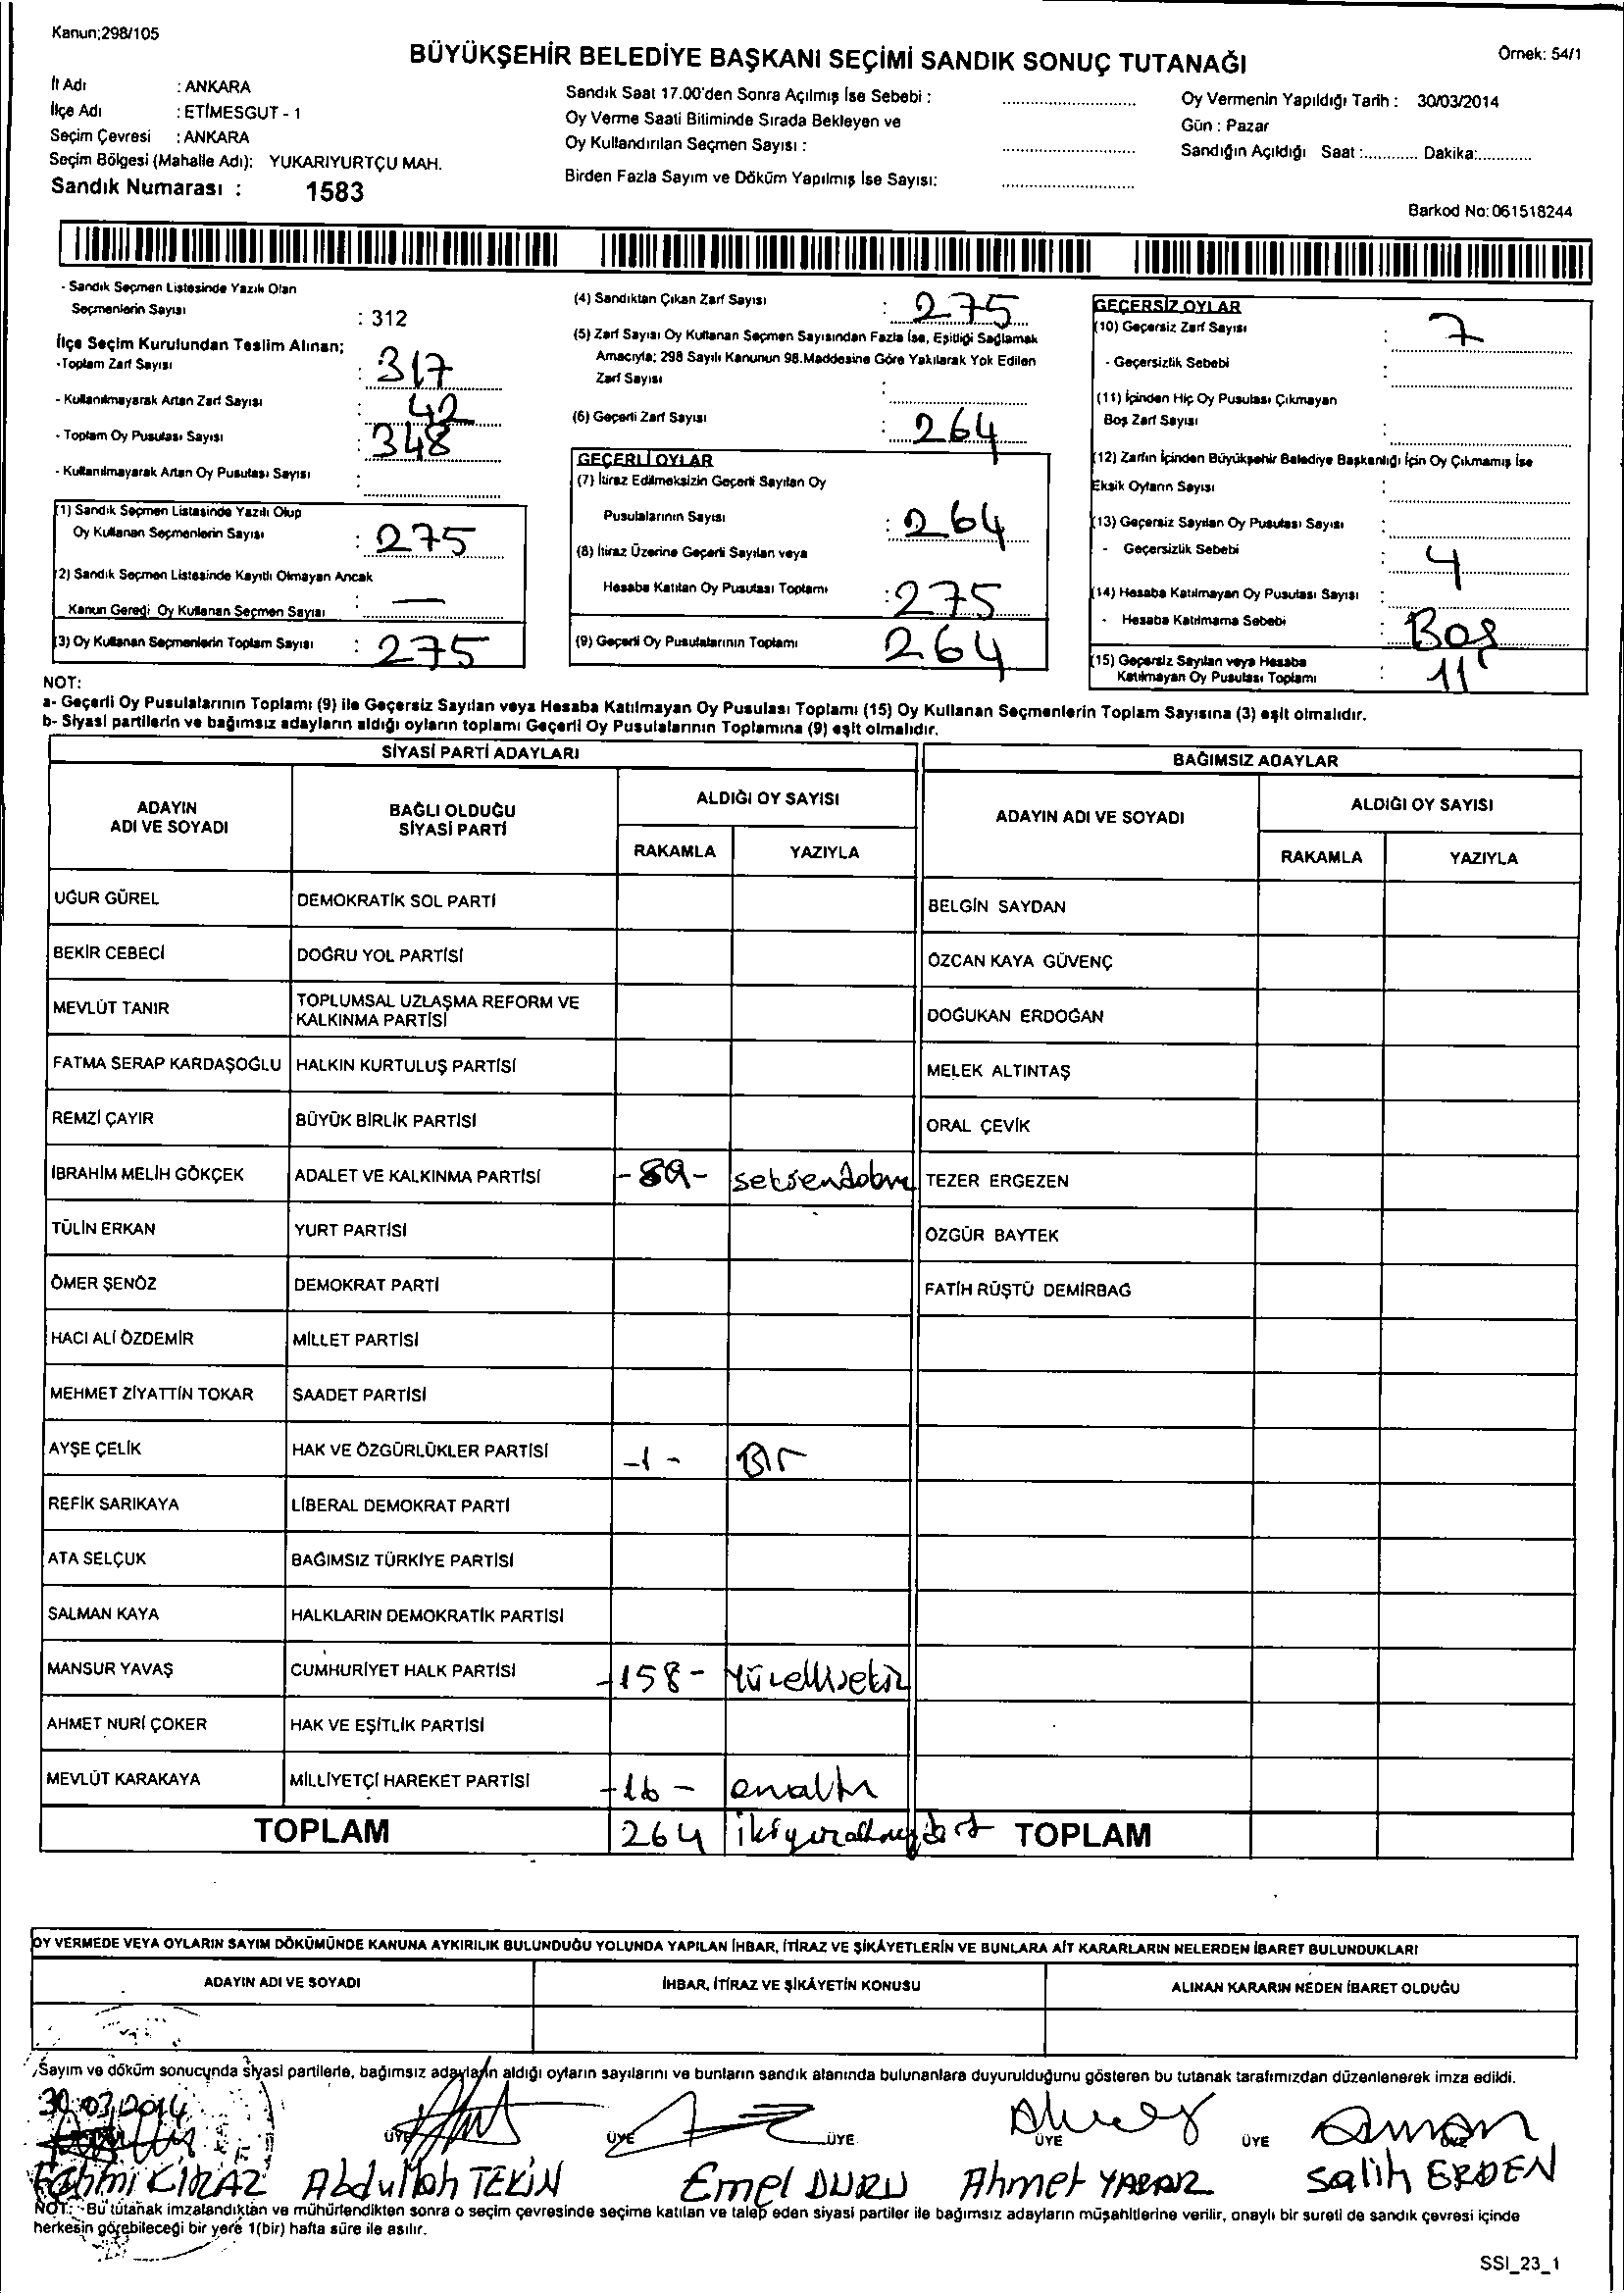 Kanun;298/105
BÜYÜKŞEHİR BELEDİYE BAŞKANI SEÇİMİ SANDIK SONUÇ TUTANAĞI
Örnek: 54/1
İl Adı : ANKARA
İlçe Adı : ETİMESGUT - 1
Seçim Çevresi : ANKARA
Seçim Bölgesi (Mahalle Adı): YUKARIYURTÇU MAH.
Sandık Numarası : 1583
Sandık Saat 17.00'den Sonra Açılmış İse Sebebi :
Oy Verme Saati Bitiminde Sırada Bekleyen ve
Oy Kullandırılan Seçmen Sayısı :
Birden Fazla Sayım ve Döküm Yapılmış İse Sayısı:
Oy Vermenin Yapıldığı Tarih : 30/03/2014
Gün : Pazar
Sandığın Açıldığı Saat :............ Dakika:............
Barkod No: 061518244
- Sandık Seçmen Listesinde Yazılı Olan
Seçmenlerin Sayısı : 312
İlçe Seçim Kurulundan Teslim Alınan;
-Toplam Zarf Sayısı : 317
- Kullanılmayarak Artan Zarf Sayısı : 42
- Toplam Oy Pusulası Sayısı : 348
- Kullanılmayarak Artan Oy Pusulası Sayısı :
(1) Sandık Seçmen Listesinde Yazılı Olup
Oy Kullanan Seçmenlerin Sayısı : 275
(2) Sandık Seçmen Listesinde Kayıtlı Olmayan Ancak
Kanun Gereği Oy Kullanan Seçmen Sayısı : —
(3) Oy Kullanan Seçmenlerin Toplam Sayısı : 275
(4) Sandıktan Çıkan Zarf Sayısı : 275
(5) Zarf Sayısı Oy Kullanan Seçmen Sayısından Fazla İse, Eşitliği Sağlamak
Amacıyla; 298 Sayılı Kanunun 98.Maddesine Göre Yakılarak Yok Edilen
Zarf Sayısı :
(6) Geçerli Zarf Sayısı : 264
GEÇERLİ OYLAR
(7) İtiraz Edilmeksizin Geçerli Sayılan Oy
Pusulalarının Sayısı : 264
(8) İtiraz Üzerine Geçerli Sayılan veya
Hesaba Katılan Oy Pusulası Toplamı : 275
(9) Geçerli Oy Pusulalarının Toplamı 264
GEÇERSİZ OYLAR
(10) Geçersiz Zarf Sayısı : 7
- Geçersizlik Sebebi :
(11) İçinden Hiç Oy Pusulası Çıkmayan
Boş Zarf Sayısı :
(12) Zarfın İçinden Büyükşehir Belediye Başkanlığı İçin Oy Çıkmamış İse
Eksik Oyların Sayısı :
(13) Geçersiz Sayılan Oy Pusulası Sayısı :
- Geçersizlik Sebebi : 4
(14) Hesaba Katılmayan Oy Pusulası Sayısı :
- Hesaba Katılmama Sebebi : Boş
(15) Geçersiz Sayılan veya Hesaba
Katılmayan Oy Pusulası Toplamı : 11
NOT:
a- Geçerli Oy Pusulalarının Toplamı (9) ile Geçersiz Sayılan veya Hesaba Katılmayan Oy Pusulası Toplamı (15) Oy Kullanan Seçmenlerin Toplam Sayısına (3) eşit olmalıdır.
b- Siyasi partilerin ve bağımsız adayların aldığı oyların toplamı Geçerli Oy Pusulalarının Toplamına (9) eşit olmalıdır.
SİYASİ PARTİ ADAYLARI
BAĞIMSIZ ADAYLAR
ADAYIN ADI VE SOYADI
BAĞLI OLDUĞU SİYASİ PARTİ
ALDIĞI OY SAYISI
RAKAMLA YAZIYLA
ADAYIN ADI VE SOYADI
ALDIĞI OY SAYISI
RAKAMLA YAZIYLA
UĞUR GÜREL DEMOKRATİK SOL PARTİ BELGİN SAYDAN
BEKİR CEBECİ DOĞRU YOL PARTİSİ ÖZCAN KAYA GÜVENÇ
MEVLÜT TANIR TOPLUMSAL UZLAŞMA REFORM VE KALKINMA PARTİSİ DOĞUKAN ERDOĞAN
FATMA SERAP KARDAŞOĞLU HALKIN KURTULUŞ PARTİSİ MELEK ALTINTAŞ
REMZİ ÇAYIR BÜYÜK BİRLİK PARTİSİ ORAL ÇEVİK
İBRAHİM MELİH GÖKÇEK ADALET VE KALKINMA PARTİSİ -89- TEZER ERGEZEN
TÜLİN ERKAN YURT PARTİSİ ÖZGÜR BAYTEK
ÖMER ŞENÖZ DEMOKRAT PARTİ FATİH RÜŞTÜ DEMİRBAĞ
HACI ALİ ÖZDEMİR MİLLET PARTİSİ
MEHMET ZİYATTİN TOKAR SAADET PARTİSİ
AYŞE ÇELİK HAK VE ÖZGÜRLÜKLER PARTİSİ -1- Bir
REFİK SARIKAYA LİBERAL DEMOKRAT PARTİ
ATA SELÇUK BAĞIMSIZ TÜRKİYE PARTİSİ
SALMAN KAYA HALKLARIN DEMOKRATİK PARTİSİ
MANSUR YAVAŞ CUMHURİYET HALK PARTİSİ -158- Yüzellisekiz
AHMET NURİ ÇOKER HAK VE EŞİTLİK PARTİSİ
MEVLÜT KARAKAYA MİLLİYETÇİ HAREKET PARTİSİ -16- onaltı
TOPLAM 264 ikiyüzaltmışdört TOPLAM
OY VERMEDE VEYA OYLARIN SAYIM DÖKÜMÜNDE KANUNA AYKIRILIK BULUNDUĞU YOLUNDA YAPILAN İHBAR, İTİRAZ VE ŞİKÂYETLERİN VE BUNLARA AİT KARARLARIN NELERDEN İBARET BULUNDUKLARI
ADAYIN ADI VE SOYADI İHBAR, İTİRAZ VE ŞİKÂYETİN KONUSU ALINAN KARARIN NEDEN İBARET OLDUĞU
Sayım ve döküm sonucunda siyasi partilerle, bağımsız adayların aldığı oyların sayılarını ve bunların sandık alanında bulunanlara duyurulduğunu gösteren bu tutanak tarafımızdan düzenlenerek imza edildi.
30.03.2014
ÜYE ÜYE ÜYE ÜYE ÜYE ÜYE
Fahmi KİRAZ Abdullah TEKİN Emel DURU Ahmet YARAR Salih ERDEN
NOT: Bu tutanak imzalandıktan ve mühürlendikten sonra o seçim çevresinde seçime katılan ve talep eden siyasi partiler ile bağımsız adayların müşahitlerine verilir, onaylı bir sureti de sandık çevresi içinde
herkesin görebileceği bir yere 1(bir) hafta süre ile asılır.
SSI_23_1